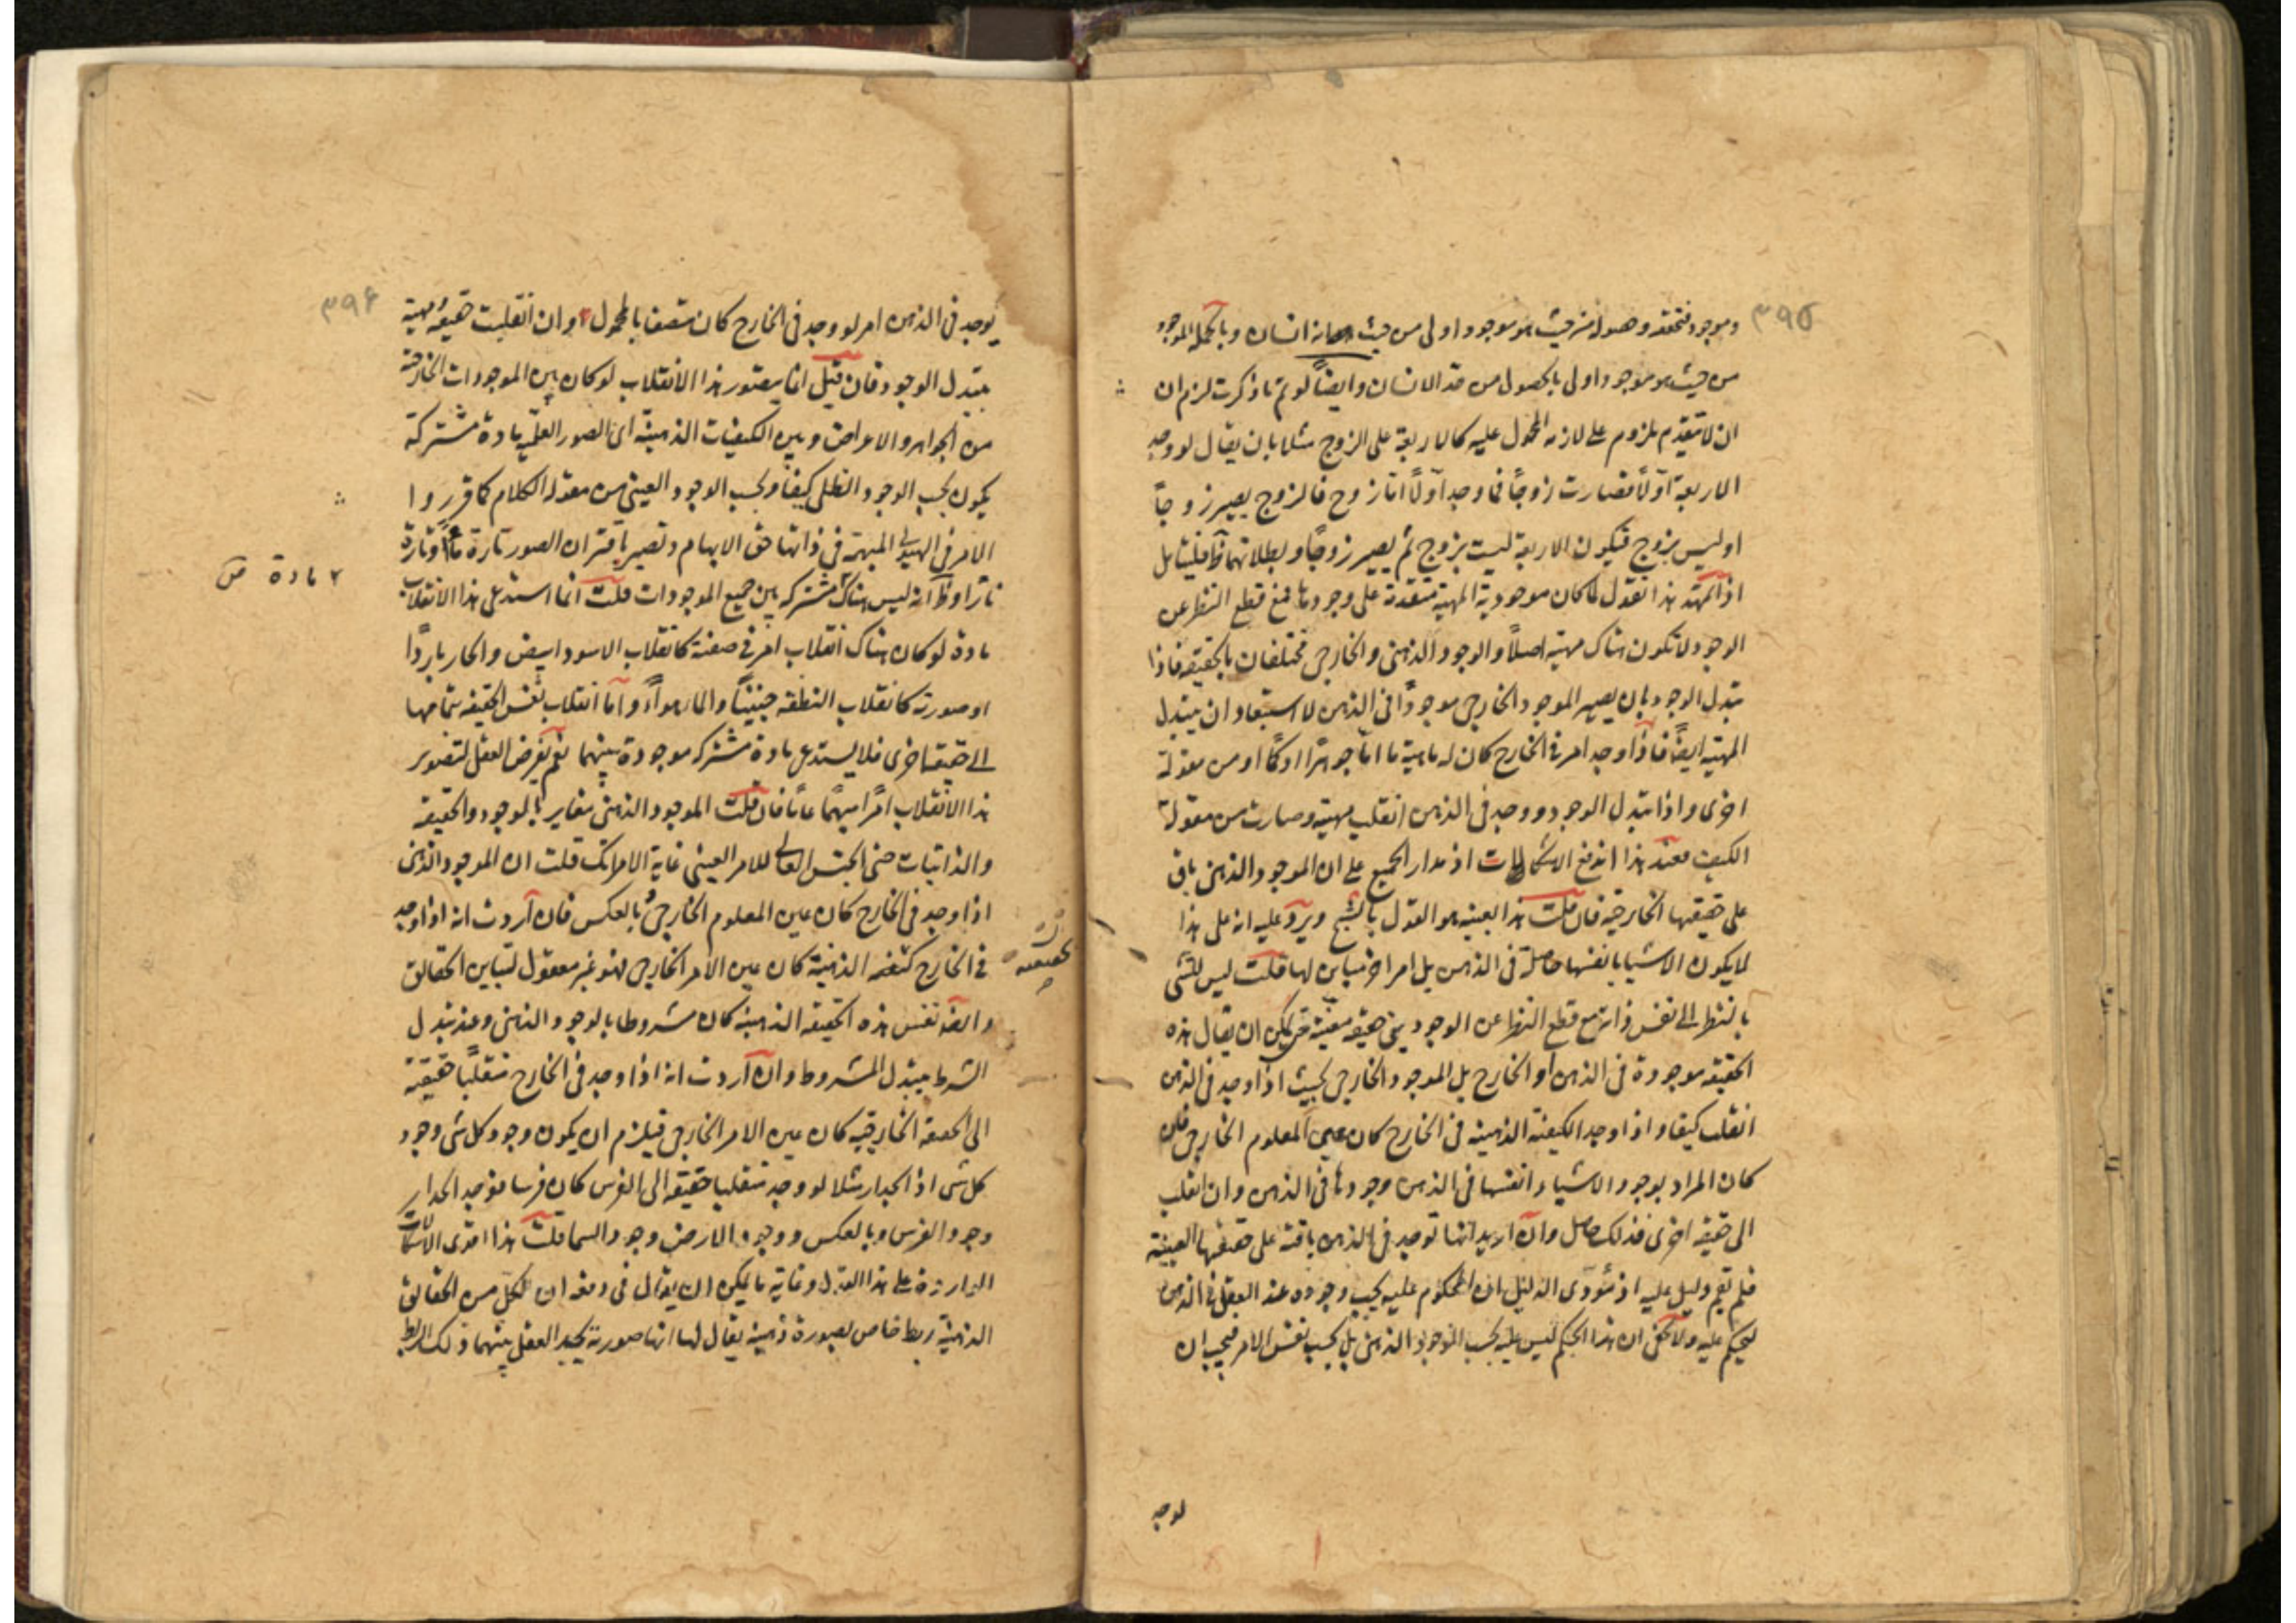 ٣٩٥
وموجود فتحققه وحصوله من حيث هو موجود اولى من حيث انه انسان وبالجملة الموجود
من حيث هو موجود اولى بالحصول من حد الانسان وايضاً لو تم ما ذكرت لزم ان
ان لا تتقدم ملزوم على لازمه المحمول عليه كالاربعة على الزوج مثلا بان يقال لو وجد
الاربعة اولاً فصارت زوجاً فما وجد اولاً اما زوج فالزوج يصير زوجاً
او ليس بزوج فيكون الاربعة ليست بزوج ثم يصير زوجاً وبطلانهما ظ فليتامل
اذا تمهد هذا نقول لما كان موجودية المهية متقدمة على وجودها فمع قطع النظر عن
الوجود لا تكون هناك مهية اصلاً والوجود الذهنى والخارجى مختلفان بالحقيقة فاذا
تبدل الوجود بان يصير الموجود الخارجى موجوداً فى الذهن لا استبعاد ان يتبدل
المهية ايضاً فاذا وجد امر فى الخارج كان له ماهية ما اما جوهراً او كماً او من مقولة
اخرى واذا تبدل الوجود ووجد فى الذهن انقلب مهيته وصارت من مقولة
الكيف فعند هذا اندفع الاشكالات اذ مدار الجميع على ان الموجود الذهنى باق
على حقيقتها الخارجية فان قلت هذا بعينه هو القول بالشبح ويرد عليه انه على هذا
لا يكون الاشيا بانفسها حاصلة فى الذهن بل امر اخر مباين لها قلت ليس للشى
بالنظر الى نفس ذاته مع قطع النظر عن الوجودين حقيقة معينة حتى يمكن ان يقال هذه
الحقيقة موجودة فى الذهن او الخارج بل الموجود الخارجى بحيث اذا وجد فى الذهن
انقلب كيفا واذا وجد الكيفية الذهنية فى الخارج كان عين المعلوم الخارجى فان
كان المراد بوجود الاشياء انفسها فى الذهن وجودها فى الذهن وان انقلب
الى حقيقة اخرى فذلك حاصل وان اريد انها توجد فى الذهن باقية على حقيقتها العينية
فلم تقم دليل عليه اذ مؤدى الدليل ان المحكوم عليه يجب وجوده عند العقل فى الذهن
ليحكم عليه ولا يخفى ان هذا الحكم ليس عليه بحسب الوجود الذهنى بل بحسب نفس الامر فيجب ان
لوجد
٣٩٦
يوجد فى الذهن امر لو وجد فى الخارج كان متصفا بالمحمول وان انقلبت حقيقة مهية
بتبدل الوجود فان قيل انما يتصور هذا الانقلاب لو كان بين الموجودات الخارجية
من الجواهر والاعراض وبين الكيفيات الذهنية اى الصور العلمية مادة مشتركة
يكون بحسب الوجود الظلى كيفاً وبحسب الوجود العينى من مقولة الكلام كما قرروا
الامر فى الهيولى المبهمة فى ذاتها حق الابهام وتصير باقتران الصور تارة ماءً وتارة
ناراً وظ انه ليس هناك مشتركة بين جميع الموجودات قلت انما استدعى هذا الانقلاب
٢ مادة ص
مادة لو كان هناك انقلاب امر فى صفته كانقلاب الاسود ابيض والحار بارداً
او صورته كانقلاب النطفة جنيناً والماء هواءً واما انقلاب نفس الحقيقة بتمامها
الى حقيقة اخرى فلا يستدعى مادة مشتركة موجودة بينهما نعم يفرض العقل لتصوير
هذا الانقلاب امراً مبهماً عاماً فان قلت الموجود الذهنى مغاير بالوجود والحقيقة
والذاتيات حتى الجنس العالى للامر العينى غاية الامر انك قلت ان الموجود الذهنى
اذا وجد فى الخارج كان عين المعلوم الخارجى وبالعكس فان اردت انه اذا وجد
فى الخارج كنفسه الذهنية كان عين الامر الخارجى فهو غير معقول لتباين الحقائق
وايضا نفس هذه الحقيقة الذهنية كان مشروطا بالوجود الذهنى وعند تبدل
الشرط يتبدل المشروط وان اردت انه اذا وجد فى الخارج منقلباً حقيقته
الى الحقيقة الخارجية كان عين الامر الخارجى فيلزم ان يكون وجود كل شى وجود
كل شى اذ الجدار مثلا لو وجد منقلبا حقيقته الى الفرس كان فرسا فوجد الجدار
وجود الفرس وبالعكس ووجود الارض وجود السما قلت هذا اقوى الاشكالات
الواردة على هذا القول وغاية ما يمكن ان يقال فى دفعه ان لكل من الحقائق
الذهنية ربط خاص بصورة ذهنية يقال لها انها صورته يجد العقل بينهما ذلك الربط